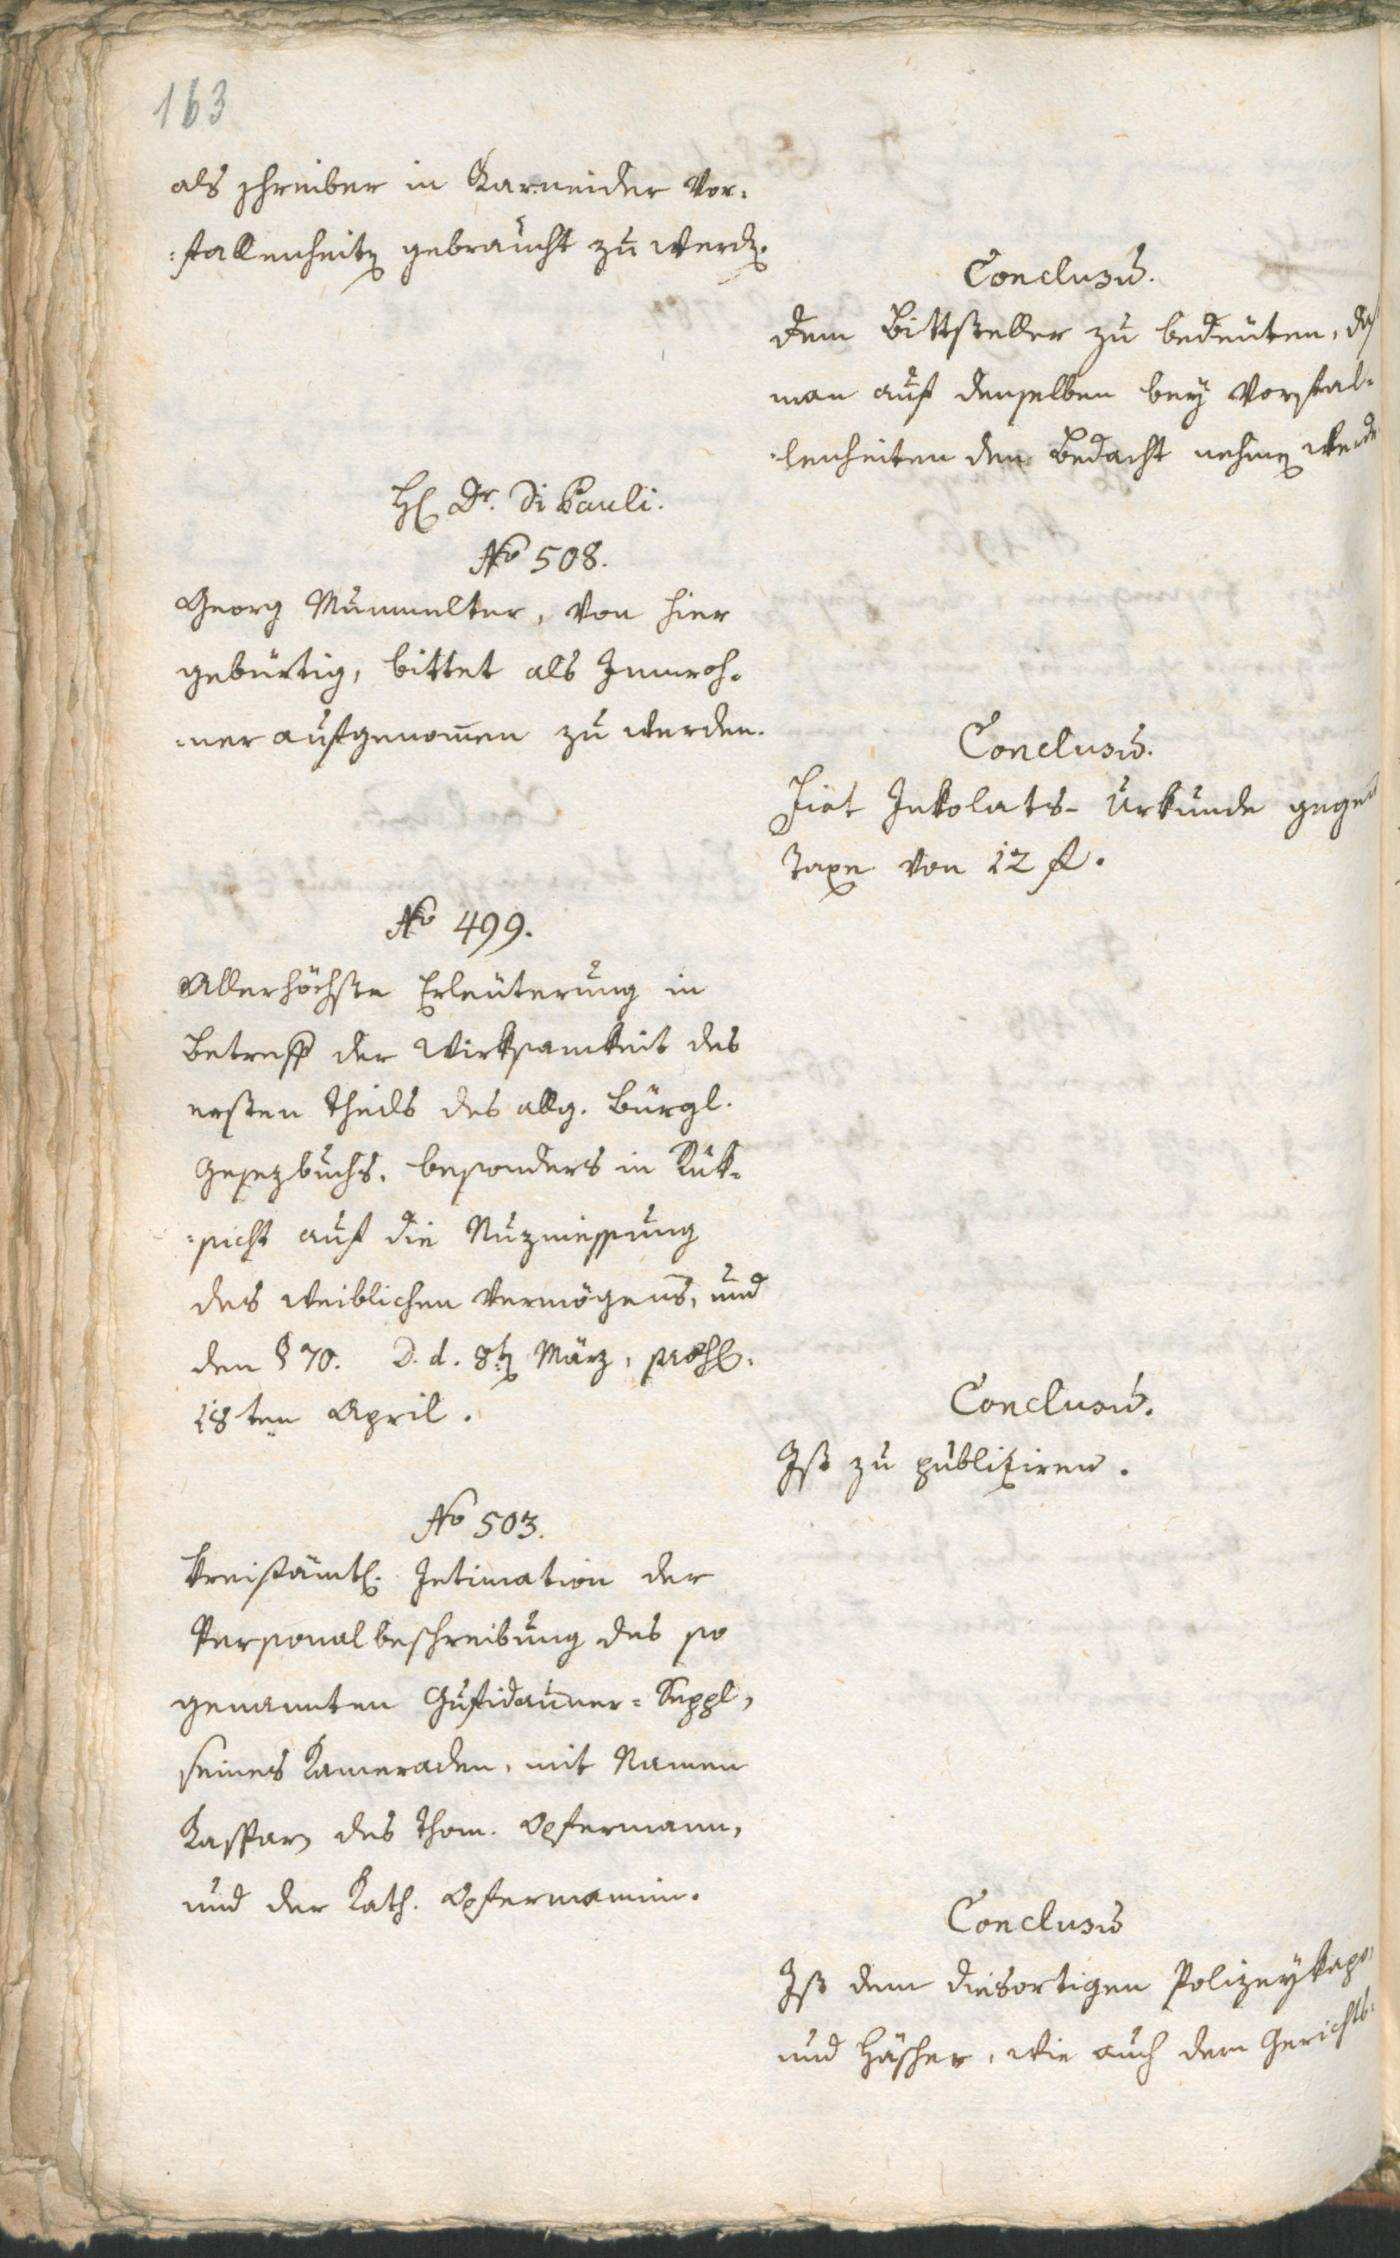 163
als Schreiber in Karneider Vor=
=fallenheiten gebraucht zu werden.
Conclusum.
Dem Bittsteller zu bedeuten, daß
man auf denselben bey Vorfal=
=lenheiten den Bedacht nehmen werde
H. Dr. Di Pauli.
No 508.
Georg Mumelter, von hier
gebürtig, bittet als Innwoh=
=ner aufgenom̅en zu werden.
Conclusum.
Fiat Inkolats-Urkunde gegen
Taxe von 12 fl.
No 499.
Allerhöchste Erleuterung in
Betreff der Wirksamkeit des
ersten Theils des allg. Bürgl.
Gesezbuchs, besonders in Rük=
=sicht auf die Nuzniessung
des weiblichen Vermögens, und
den § 70. D. d. 8ten März,
18ten April.
Conclusum.
Ist zu publiziren.
No 503.
Kreisämtl. Intimation der
Personalbeschreibung des so
genannten Gufidauner=Seppl,
seines Kameraden, mit Namen
Kaspar, des Thom. Opfermann,
und der Kath. Opfermannin.
Conclusum
Ist dem diesortigen Polizeykapo,
und Häscher, wie auch dem Gerichts=